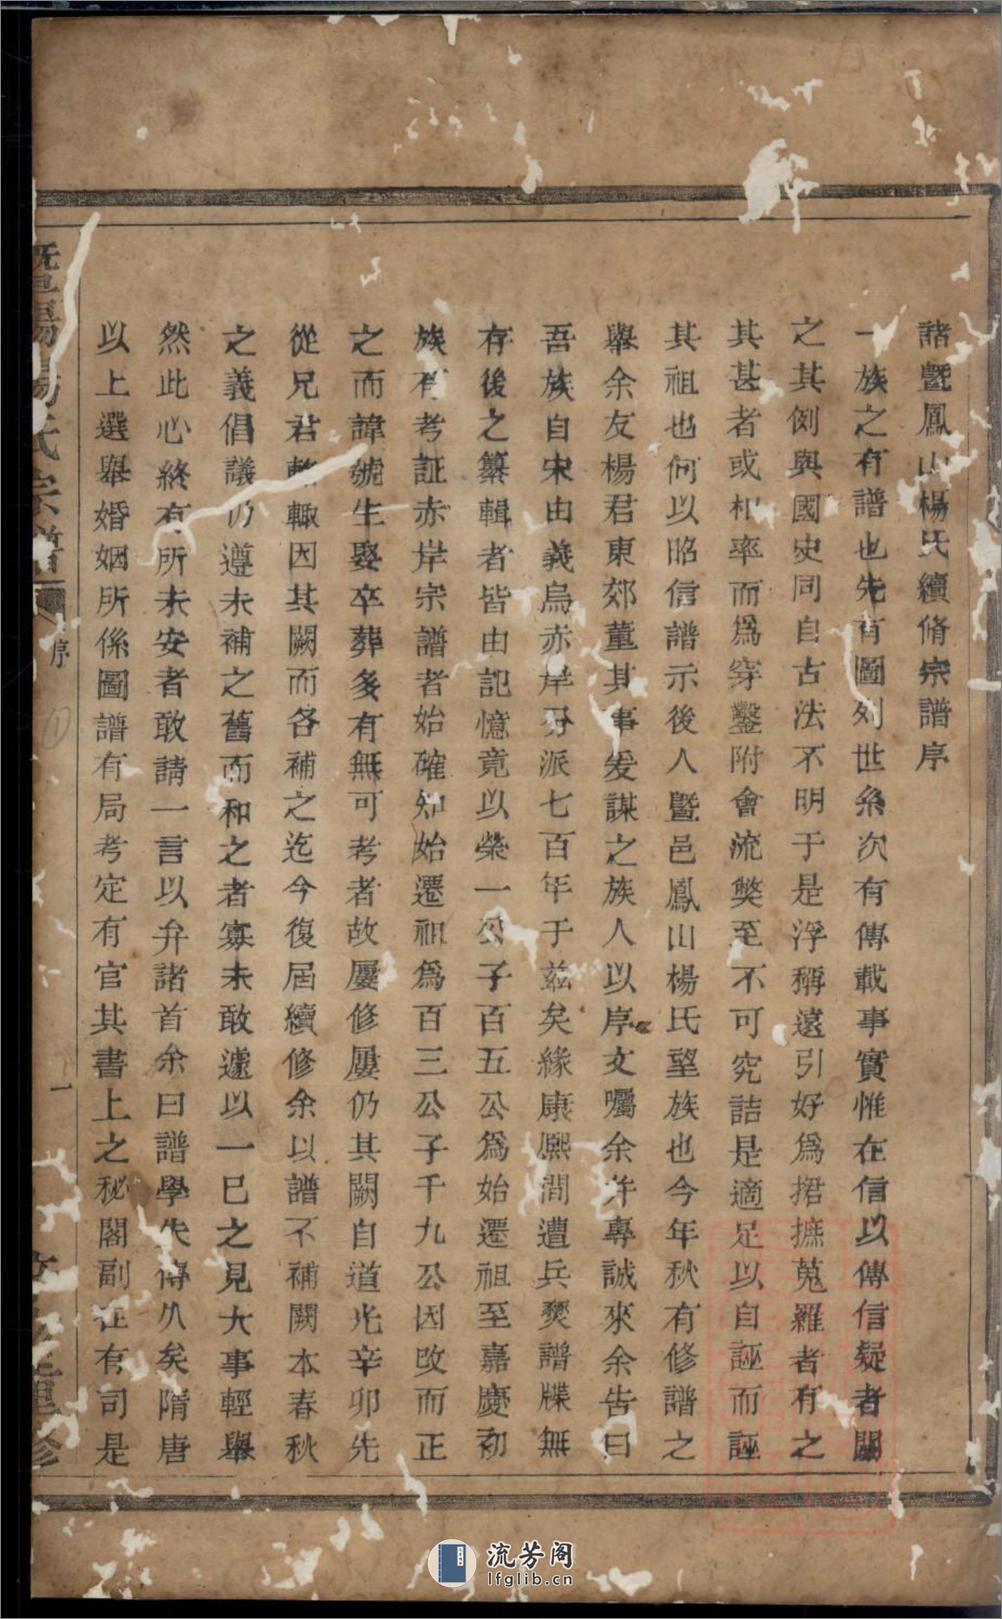 諸暨鳳山楊氏續脩宗譜序
一族之有譜也先有圖列世系次有傳載事實惟在信以傳信疑者闕
之其例與國史同自古法不明于是浮稱遠引好爲捃摭蒐羅者有之
其甚者或相率而爲穿鑿附會流獘至不可究詰是適足以自誣而誣
其祖也何以昭信譜示後人暨邑鳳山楊氏望族也今年秋有修譜之
舉余友楊君東郊董其事爰謀之族人以序文囑余并專誠來余告曰
吾族自宋由義烏赤岸分派七百年于玆矣緣康熈間遭兵燹譜牒無
存後之纂輯者皆由記憶竟以榮一公子百五公爲始遷祖至嘉慶初
族有考証赤岸宗譜者始確知始遷祖爲百三公子千九公因改而正
之而諱號生娶卒葬多有無可考者故屢修屢仍其闕自道光辛卯先
從兄君軫輙因其闕而各補之迄今復屆續修余以譜不補闕本春秋
之義倡議仍遵未補之舊而和之者寡未敢遽以一已之見大事輕舉
然此心終有所未安者敢請一言以弁諸首余曰譜學失傳久矣隋唐
以上選舉婚姻所係圖譜有局考定有官其書上之秘閣副在有司是
暨陽楊氏宗譜
序
一
流芳阁
lfglib.cn